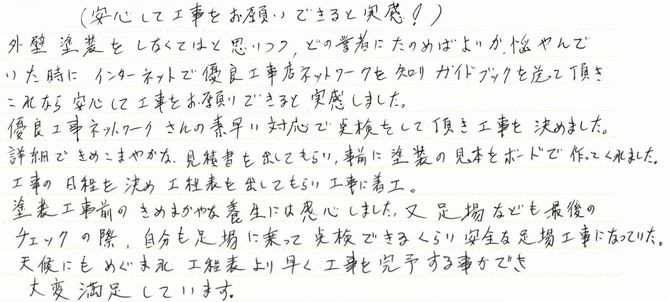 (安心して工事をお願いできると実感!)
外壁塗装をしなくてはと思いつつ、どの業者にたのめばよいか、悩やんで
いた時に インターネットで優良工事店ネットワークを知り ガイドブックを送て頂き
これなら安心して工事をお願いできると実感しました。
優良工事ネットワークさんの素早い対応で点検をして頂き工事を決めました。
詳細できめこまやかな、見積書を出してもらい、事前に塗装の見本をボードで作ってくれました。
工事の日程を決め工程表を出してもらい工事に着工。
塗装工事前のきめまかやな養生には感心しました。又足場なども最後の
チェックの際、自分も足場に乗って点検できるくらい安全な足場工事になっていた。
天候にもめぐまれ工程表より早く工事を完予する事ができ
大変満足しています。